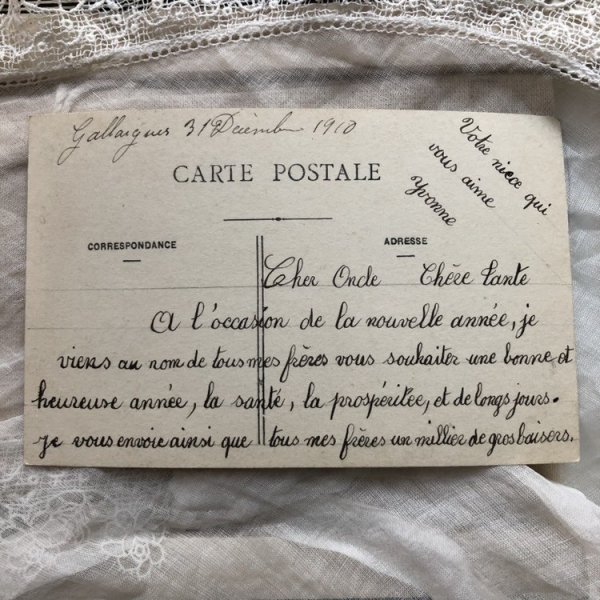 Gallargues 31 Décembre 1910
CARTE POSTALE
Votre niece qui
vous aime
Yvonne
CORRESPONDANCE
ADRESSE
Cher Oncle Chère Tante
A l'occasion de la nouvelle année, je
viens au nom de tous mes frères vous souhaiter une bonne et
heureuse année, la santé, la prospéritée, et de longs jours.
je vous envoie ainsi que tous mes frères un millier de gros baisers.